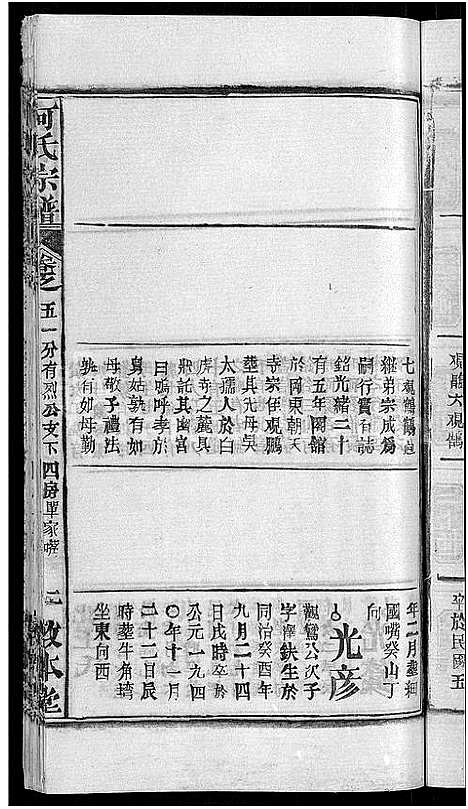 觀鵲大觀鶴
卒於民國五
年二月塟
國嘴癸山丁
向
光彦
觀鸞公次子
字澤鈇生於
同治癸酉年
九月二十四
日戌時卒於
公元一九四
〇年十一月
二十二日辰
時塟牛角塆
坐東向西
七觀鶴鶴
繼弟宗成為
嗣行實有誌
銘光緒二十
有五年國館
於岡東朝天
寺宗侄觀鵬
塟其先母吳
太孺人於白
虎寺之麓具
狀託其幽宮
曰嗚呼孝於
舅姑孰有如
母敬子禮法
孰有如母勤
何氏宗譜
卷之
五一分有烈公支下四房單家嘴
敦本堂